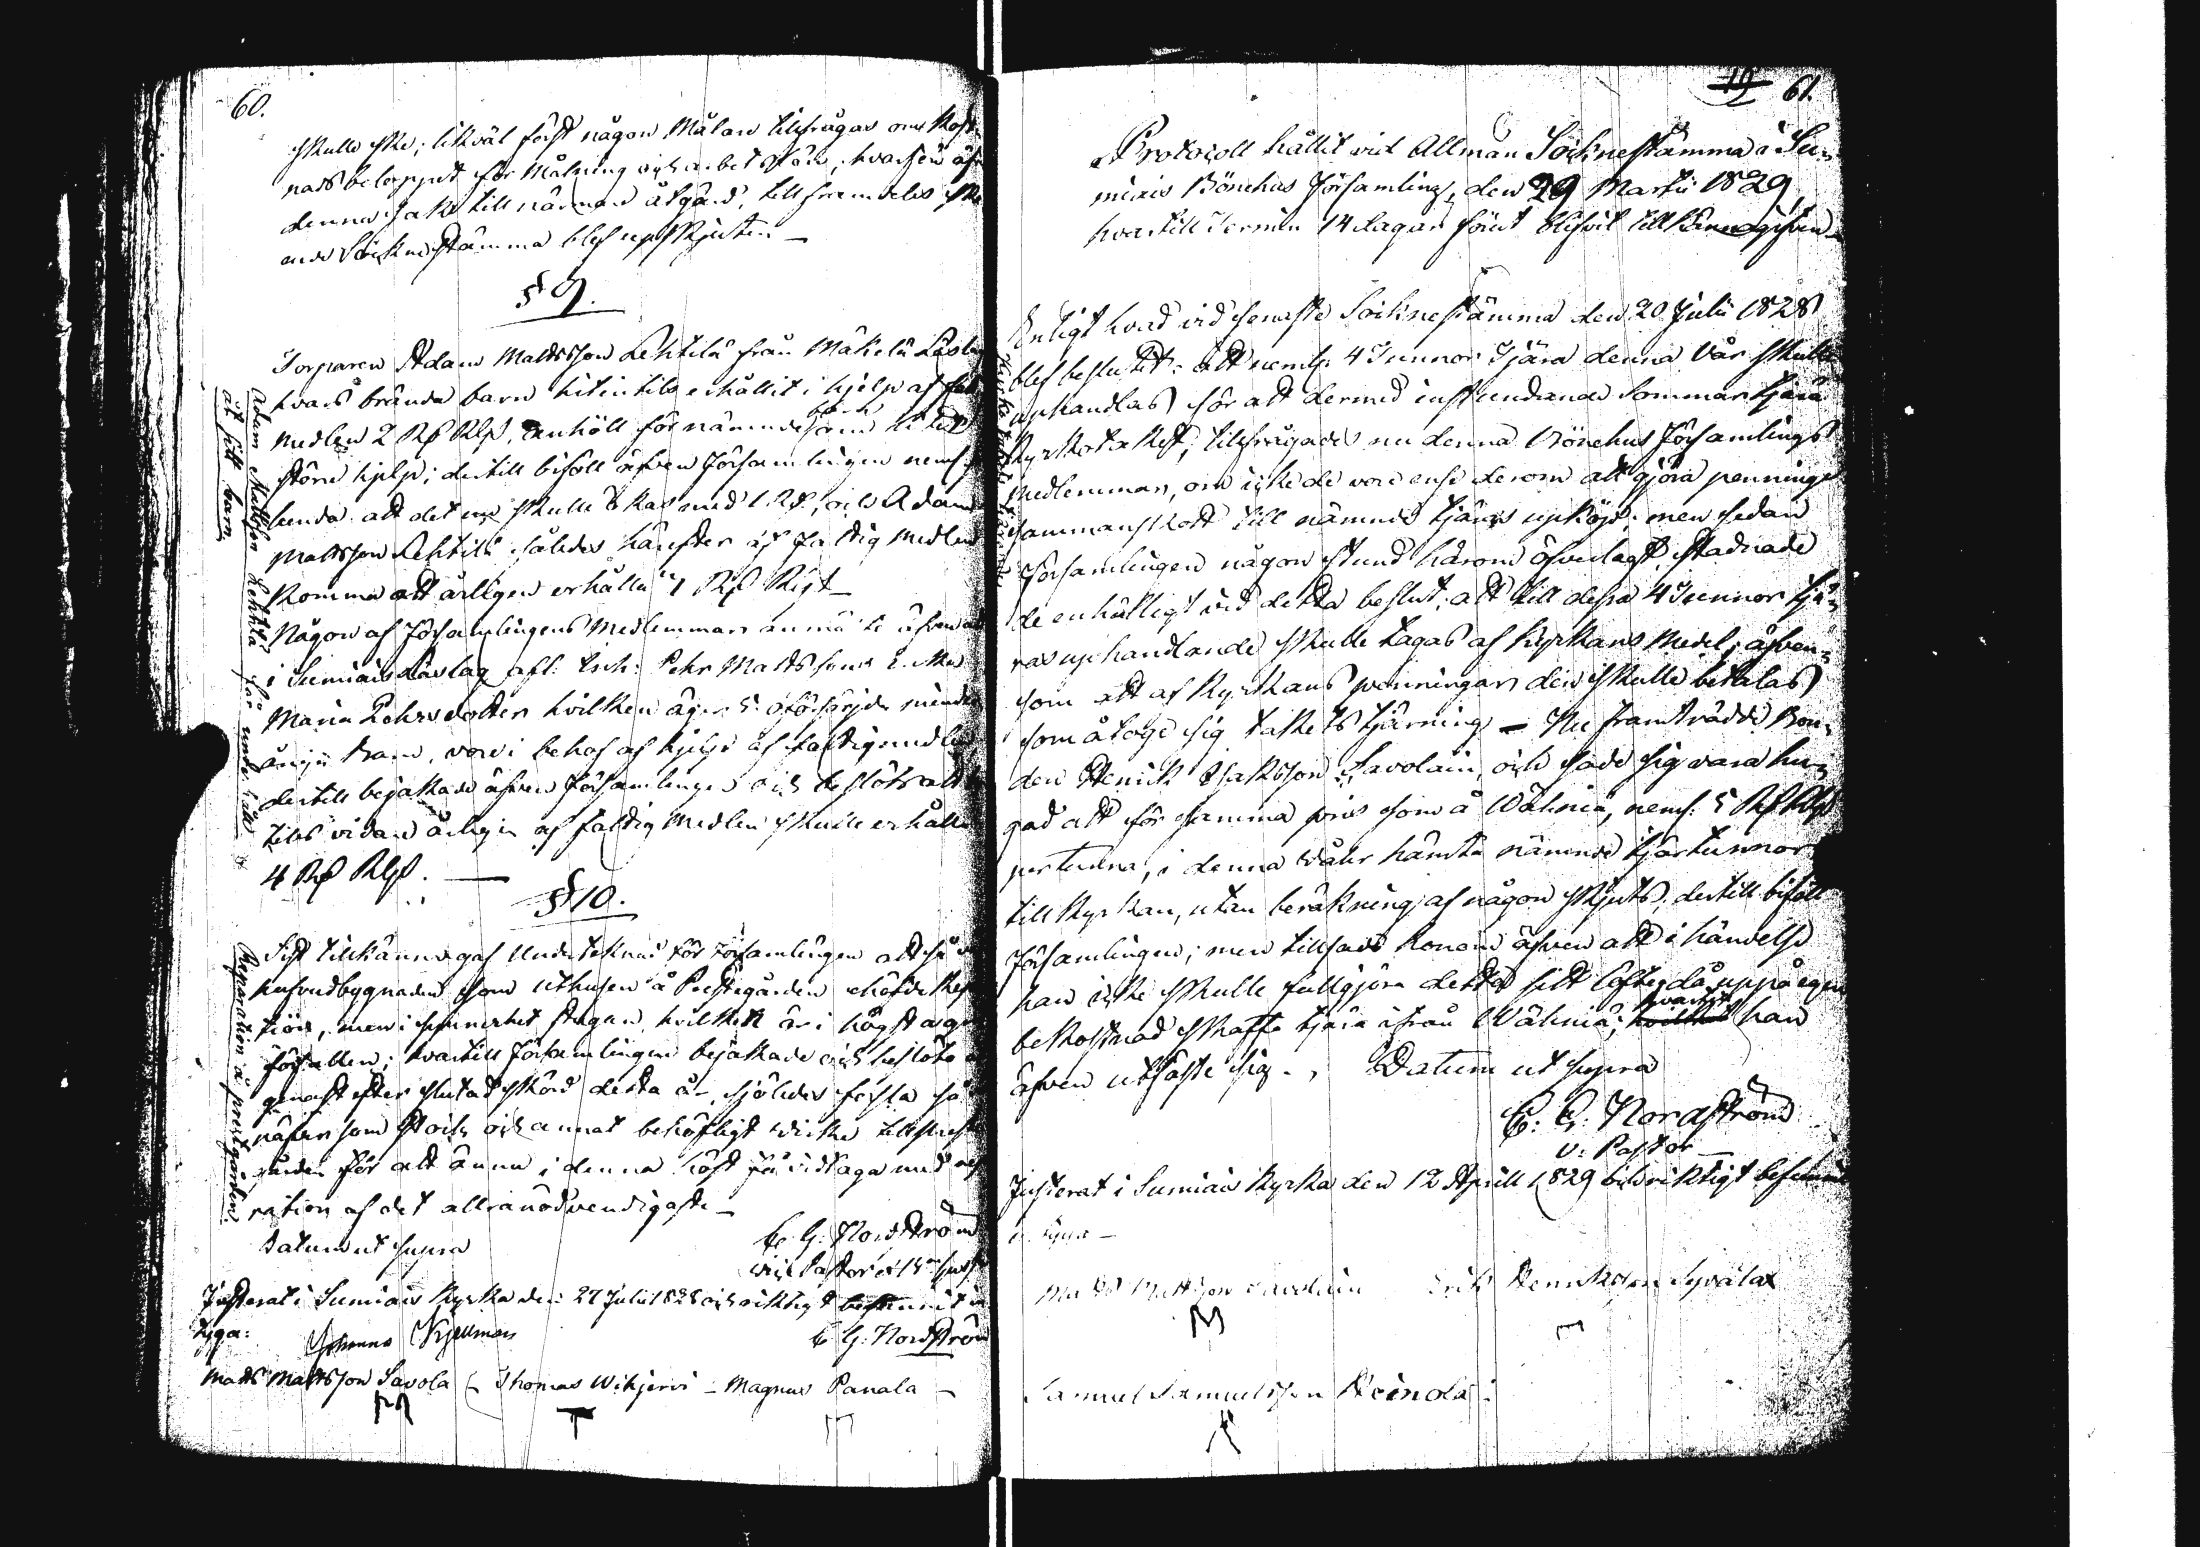 60.
skulle ske; likväl först någon Målare tillfrågas om Kost-
nads beloppet för Målning och arbetslön, hvarföre äfv
denna sak till närmare åtgärd, till framdeles ske
ande Söcknestämma blef upskjuten —
§ 9.
Torparen Adam Mattsson Lehtilä från Mäkelä Läslag
hvars brända barn hitintils erhållit i hjelp af fat
medlen 2 Rub Rgs, anhöll för nämnde barn
större hjelp; dertill biföll äfven Församlingen nemt
lunda att det nu skulle ökas med 1 Rub, och Adam
Mattsson Lehtilä således härefter af fattig medlen
komma att årligen erhålla
Någon af Församlingens Medlemmar anmälte äfven att
i Sumiais Läslag afl: Pehr Matts sons Enka
Maria Pehrsdotter hvilken äger 5 oförsörjda minder
åriga barn, vore i behof af hjelp af fattigmedlen
dertill bejakade äfven Församlingen och beslöts att
tils vidare årligen af fattig Medlen skulle erhålla
4 Rub Rgs. —
Adam Mattsson Lehtilä får underhåll
åt sitt barn
§ 10.
Sist tillkännagaf Undertecknad för Församlingen att så
hufvudbygnaden som uthusen å Prestegården behöfde Repa
tion, men i synnerhet stugan, hvilken är i högst
förfallen; hvartill Församlingen bejakade och beslöts
genast efter slutad skörd detta år, således forsla så
näfver som Stock och annat behöfligt virke till Preste
gården för att ännu i denna höst få vidtaga med repa
ration af det allranödvendigaste —
Datum ut supra
C. G. Nordström
Reparation å prestgården
Justerat i Sumiais Kyrka den 27 Julii 1828 och riktigt befunnit in
tyga:
Johannes Kjellman
C G: Nordström
Matts Mattsson Savola
Thomas Wihjervi — Magnus Panala —
19 61.
Protocoll hållit vid Allmän Söcknestämma i Su-
miais Bönehus Församling, den 29 Martii 1829,
hvartill Termin 14 dagar förut blifvit tillkännagifven —
Enligt hvad vid senaste Söcknestämma den 20 Julii 1828
blef beslutit: att neml: 4 Tunnor Tjära denna Vår skulle
uphandlas för att dermed instundande Sommar tjära
Kyrkotaket; tillfrågades nu denna Bönehus Församlings
Medlemmar, om icke de vore ense derom att göra pennings
sammanskott till nämnde tjäras upköp; men sedan
Församlingen någon stund härom öfverlagt, stadnade
de enhälligt vid detta beslut: att till dessa 4 Tunnor tjä-
ras uphandlande skulle tagas af Kyrkans Medel; äfven-
som att af Kyrkans penningar den skulle betalas
som åtoge sig takets tjärning — Nu framträdde Bon-
den Henrik Isaksson Savolain, och sade sig vara hu-
gad att för samma pris som å Wähniä, neml: 5 Rub Rgs
per tunna, i denna vår hämta nämnde tjärtunnor
till Kyrkan, utan beräkning af någon skjuts; dertill biföll
Församlingen; men tillsade honom äfven att i händelse
han icke skulle fullgöra detta sitt löfte då uppå egen
bekostnad skaffa tjära ifrån Wähniä; hvartill han
äfven utfäste sig. Datum ut supra
C. G. Nordström
v: Pastor
Justerat i Sumiais Kyrka den 12 Aprill 1829 och riktigt befunnit
tyga —
Matts Mattson Savolain Erik Henriksson Syvälax
Samuel Samuelsson Heinola